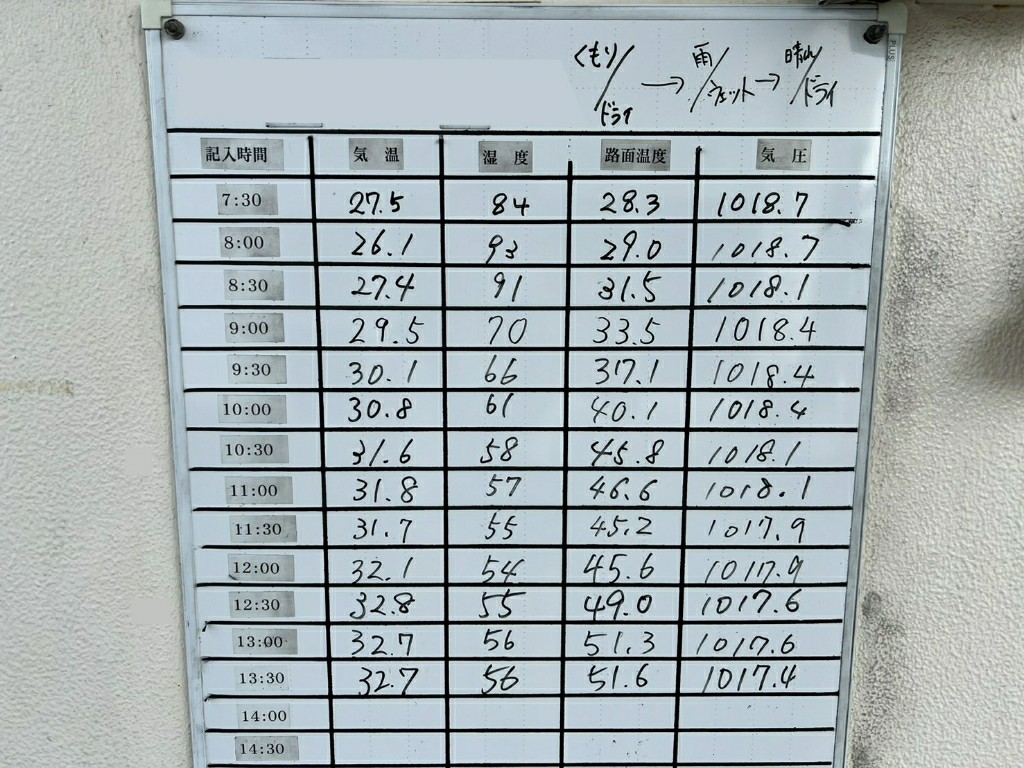 くもり/ドライ → 雨/ウェット → 晴れ/ドライ
PLUS
記入時間 気温 湿度 路面温度 気圧
7:30 27.5 84 28.3 1018.7
8:00 26.1 93 29.0 1018.7
8:30 27.4 91 31.5 1018.1
9:00 29.5 70 33.5 1018.4
9:30 30.1 66 37.1 1018.4
10:00 30.8 61 40.1 1018.4
10:30 31.6 58 45.8 1018.1
11:00 31.8 57 46.6 1018.1
11:30 31.7 55 45.2 1017.9
12:00 32.1 54 45.6 1017.9
12:30 32.8 55 49.0 1017.6
13:00 32.7 56 51.3 1017.6
13:30 32.7 56 51.6 1017.4
14:00
14:30